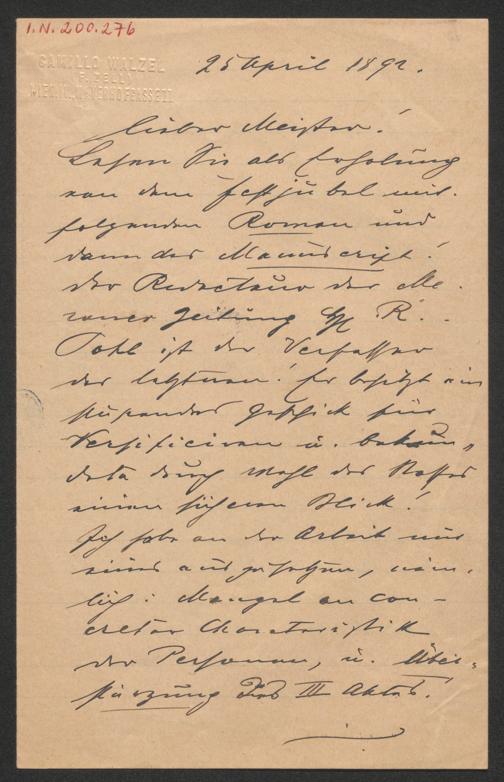 I.N. 200.276
CAMILLO WALZEL
F. ZELL
WIEN, IV.
25 April 1892.
lieber Meister!
Lesen Sie als Erholung
von dem Festjubel mit-
folgenden Roman und
dann das Manuscript!
der Redacteur der Me-
raner Zeitung H R.
ist der Verfasser
des letzteren! Er besitzt ein
stupendes Geschick für
Versificiren u. bekun-
dete durch Wahl des Stoffes
einen sicheren Blick!
Ich habe an der Arbeit nur
eines auszusetzen, näm-
lich: Mangel an con-
creter Charakteristik
der Personen, u. Über-
stürzung des III Aktes!